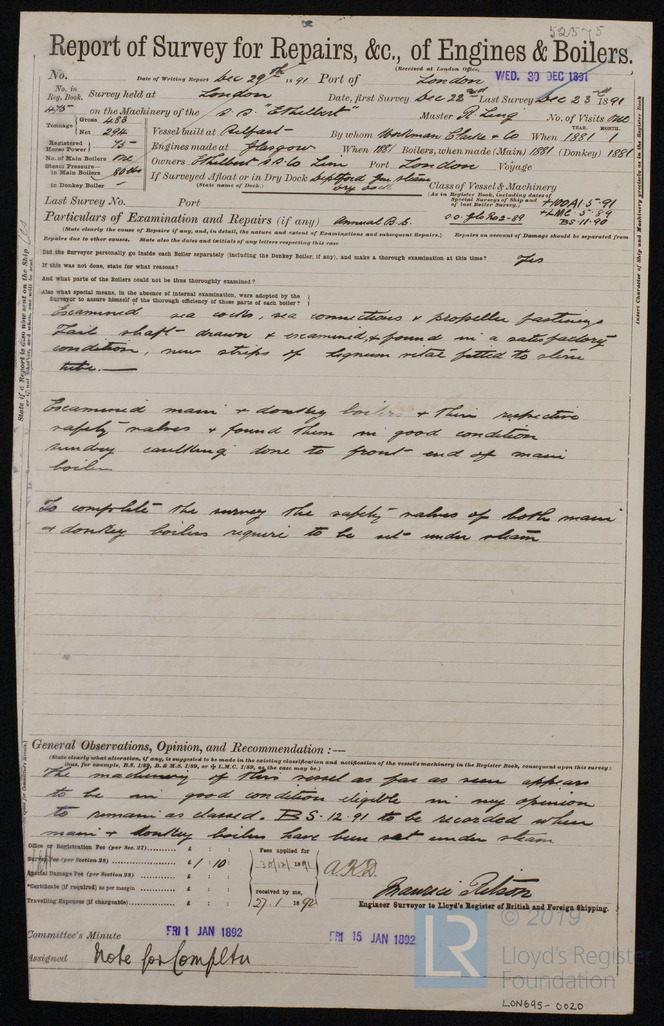 52575
Report of Survey for Repairs, &c., of Engines & Boilers.
(Received at London Office,
No. Date of Writing Report Dec 29th 1891 Port of London WED. 30 DEC 1891
No. in Reg. Book. Survey held at London Date, first Survey Dec 22nd Last Survey Dec 23rd 1891
475 on the Machinery of the s.s. "Ethelbert" Master R. Ling No. of Visits One
Tonnage Gross 483
Net 294
Vessel built at Belfast By whom Workman Clarke & Co When 1881 1
YEAR. MONTH.
Registered Horse Power 75 Engines made at Glasgow When 1881 Boilers, when made (Main) 1881 (Donkey) 1881
No. of Main Boilers One Owners Ethelbert S.S. Co Lim Port London Voyage
Steam Pressure in Main Boilers 80 lbs If Surveyed Afloat or in Dry Dock Deptford
(State name of Dock.) Dry Dock
in Donkey Boiler – Class of Vessel & Machinery
(As in Register Book, including dates of Special Surveys of Ship and of last Boiler Survey.)
+100A1 5.91
+LMC 5.89
BS 11.90
Last Survey No. Port
Particulars of Examination and Repairs (if any) Annual B.S.
(State clearly the cause of Repairs if any, and, in detail, the nature and extent of Examinations and subsequent Repairs.) Repairs on account of Damage should be separated from
Repairs due to other causes. State also the dates and initials of any letters respecting this case
Did the Surveyor personally go inside each Boiler separately (including the Donkey Boiler, if any), and make a thorough examination at this time? Yes
If this was not done, state for what reasons?
And what parts of the Boilers could not be thus thoroughly examined?
Also what special means, in the absence of internal examination, were adopted by the
Surveyor to assure himself of the thorough efficiency of those parts of each boiler?
Examined sea cocks, sea connections & propeller fastenings
Tail shaft drawn & examined, & found in a satisfactory
condition, new strips of lignum vitae fitted to stern
tube.
Examined main & donkey boilers & their respective
safety valves & found them in good condition
sundry caulking done to front end of main
boiler
To complete the survey the safety valves of both main
& donkey boilers require to be set under steam
General Observations, Opinion, and Recommendation :—
(State clearly what alteration, if any, is suggested to be made in the existing classification and notification of the vessel's machinery in the Register Book, consequent upon this survey:
thus, for example, B.S. 1/89, B. & M.S. 1/89, or L.M.C. 1/89, as the case may be.)
The machinery of this vessel as far as seen appears
to be in good condition eligible in my opinion
to remain as classed. B S. 12.91 to be recorded when
main & donkey boilers have been set under steam
Office or Registration Fee (per Sec. 27) £ : : Fees applied for
Survey Fee (per Section 28) £ 1 : 10 : 30/12/1891
Special Damage Fee (per Section 28) £ : :
*Certificate (if required) as per margin £ : : received by me,
Travelling Expenses (if chargeable) £ : : 27.1 1892
Engineer Surveyor to Lloyd's Register of British and Foreign Shipping.
Committee's Minute FRI 1 JAN 1892 FRI 15 JAN 1892
Assigned Note for Compltn
LR
© 2019
Lloyd's Register
Foundation
LON695-0020